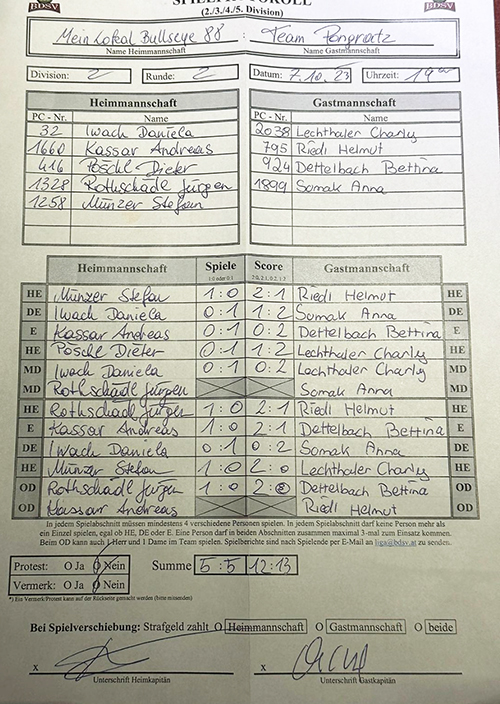 BDSV BDSV
(2./3./4./5. Division)
Mein Lokal Bullseye 88 : Team Pongratz
Name Heimmannschaft Name Gastmannschaft
Division: 2 Runde: 2 Datum: 7.10.23 Uhrzeit: 19⁰⁰
Heimmannschaft Gastmannschaft
PC - Nr. Name PC - Nr. Name
32 Iwach Daniela 2038 Lechthaler Charly
1660 Kassar Andreas 795 Riedl Helmut
416 Pöschl Dieter 924 Dettelbach Bettina
1328 Rothschädl Jürgen 1899 Somak Anna
1258 Münzer Stefan
Heimmannschaft Spiele Score Gastmannschaft
1:0 oder 0:1 2:0, 2:1, 0:2, 1:2
HE Münzer Stefan 1:0 2:1 Riedl Helmut HE
DE Iwach Daniela 0:1 1:2 Somak Anna DE
E Kassar Andreas 0:1 0:2 Dettelbach Bettina E
HE Pöschl Dieter 0:1 1:2 Lechthaler Charly HE
MD Iwach Daniela 0:1 0:2 Lechthaler Charly MD
MD Rothschädl Jürgen Somak Anna MD
HE Rothschädl Jürgen 1:0 2:1 Riedl Helmut HE
E Kassar Andreas 1:0 2:1 Dettelbach Bettina E
DE Iwach Daniela 0:1 0:2 Somak Anna DE
HE Münzer Stefan 1:0 2:0 Lechthaler Charly HE
OD Rothschädl Jürgen 1:0 2:0 Dettelbach Bettina OD
OD Kassar Andreas Riedl Helmut OD
In jedem Spielabschnitt müssen mindestens 4 verschiedene Personen spielen. In jedem Spielabschnitt darf keine Person mehr als
ein Einzel spielen, egal ob HE, DE oder E. Eine Person darf in beiden Abschnitten zusammen maximal 3-mal zum Einsatz kommen.
Beim OD kann auch 1 Herr und 1 Dame im Team spielen. Spielberichte sind nach Spielende per E-Mail an liga@bdsv.at zu senden.
Protest: O Ja O Nein Summe 5:5 12:13
Vermerk: O Ja O Nein
*) Ein Vermerk/Protest kann auf der Rückseite gemacht werden (bitte mitsenden)
Bei Spielverschiebung: Strafgeld zahlt O Heimmannschaft O Gastmannschaft O beide
x x
Unterschrift Heimkapitän Unterschrift Gastkapitän